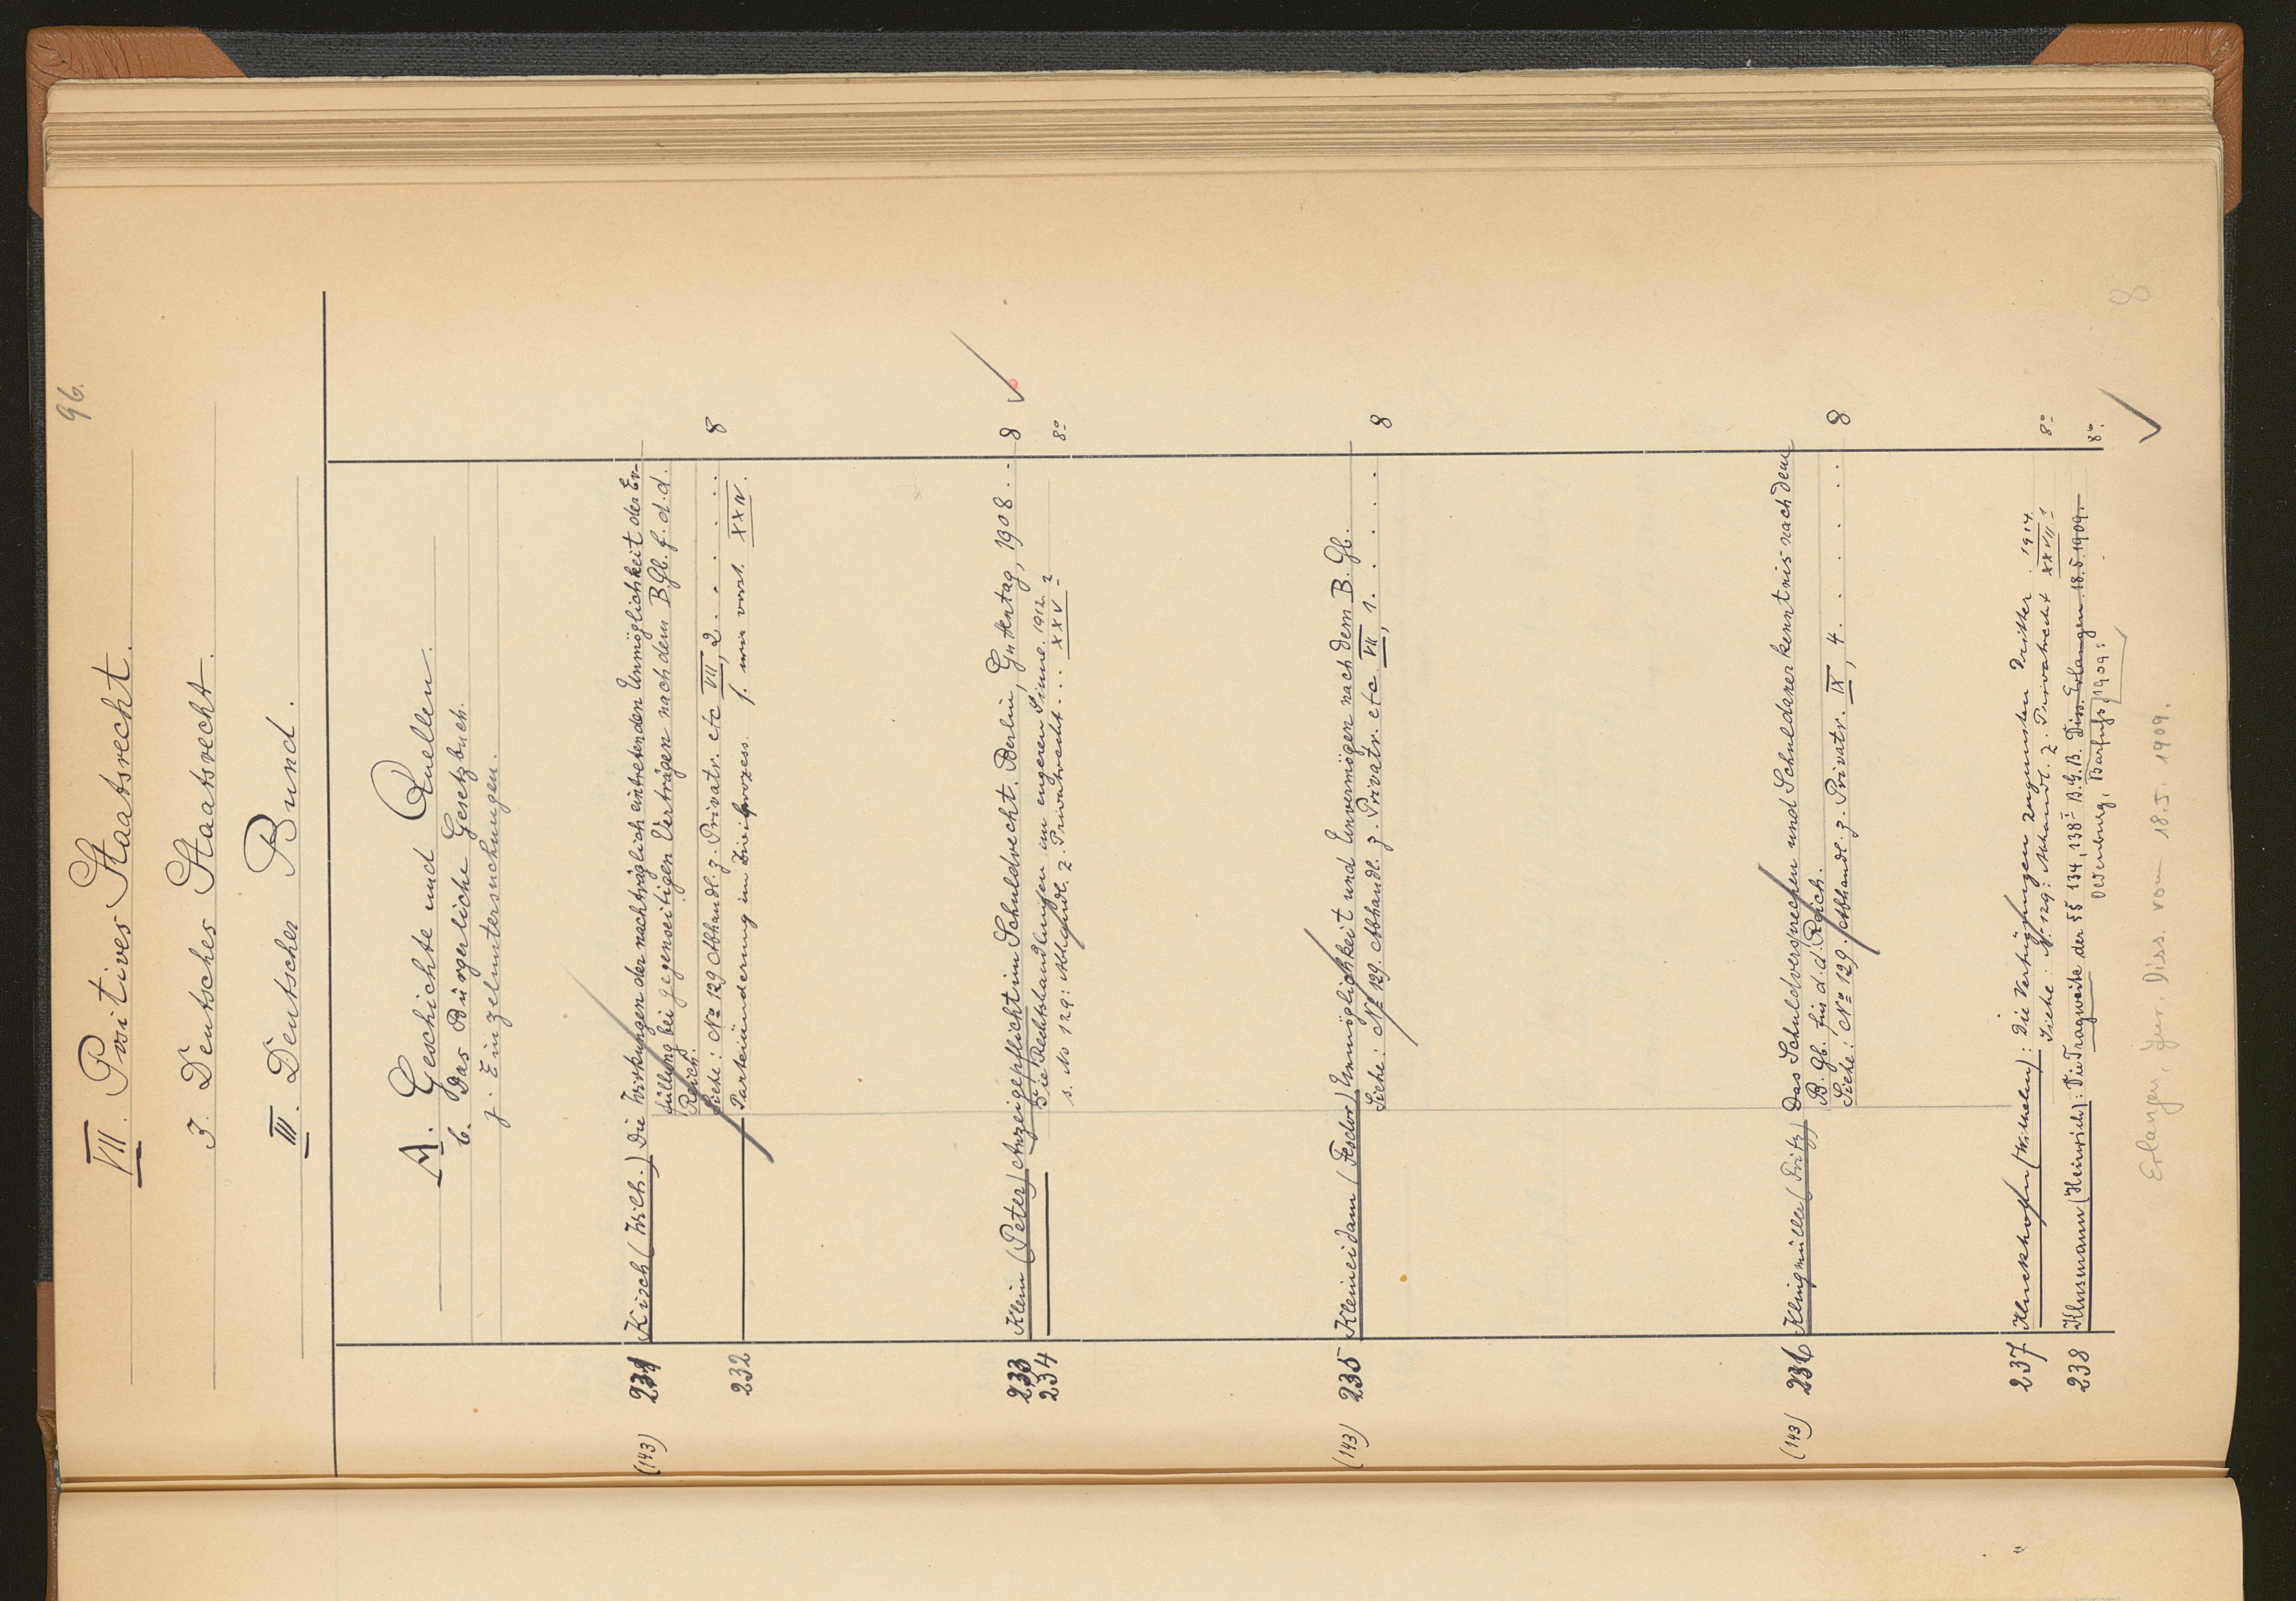 96.
VII. Positives Staatsrecht.
3. Deutsches Staatsrecht.
III. Deutscher Bund.
A. Geschichte und Quellen.
b. Das Bürgerliche Gesetzbuch.
z. Einzeluntersuchungen.
(143) 231 Kisch (Wilh.) Die Wirkungen der nachträglich eintretenden Unmöglichkeit der Er-
füllung bei gegenseitigen Verträgen nach dem B. Gb. f. d. d.
Reich.
Siehe: No 129 Abhandl. z. Privatr. etc VII, 2 . . . . . 8
232 Parteiänderung im Zivilprozess. s. wie vorst. XXIV.
233 Klein (Peter) Anzeigepflicht im Schuldrecht. Berlin, Guttentag, 1908 . . 8
234 Die Rechtshandlungen im engeren Sinne. 1912.
s. No 129: Abhandl. z. Privatrecht . . . XXV 2 8o
(143) 235 Kleineidam (Feodor) Unmöglichkeit und Unvermögen nach dem B. Gb.
Siehe: No 129. Abhandl. z. Privatr. etc VII, 1. . . . . 8
(143) 236 Klingmüller (Fritz) Das Schuldversprechen und Schuldanerkenntnis nach dem
B. Gb. für d. d. Reich.
Siehe: No 129. Abhandl. z. Privatr. IX, 4. . . . . 8
237 Kluckhohn (Wilhelm): Die Verfügungen zugunsten Dritter. 1914.
Siehe: N. 129: Abhandl. z. Privatrecht XXVII 1 8o
238 Klusmann (Heinrich): Die Tragweite der §§ 134, 138 I B. G. B. Diss. Erlangen. 18. 5. 1909. 8o.
Oldenburg, Barfuss, 1909;
Erlangen, Jur. Diss. vom 18. 5. 1909.
8